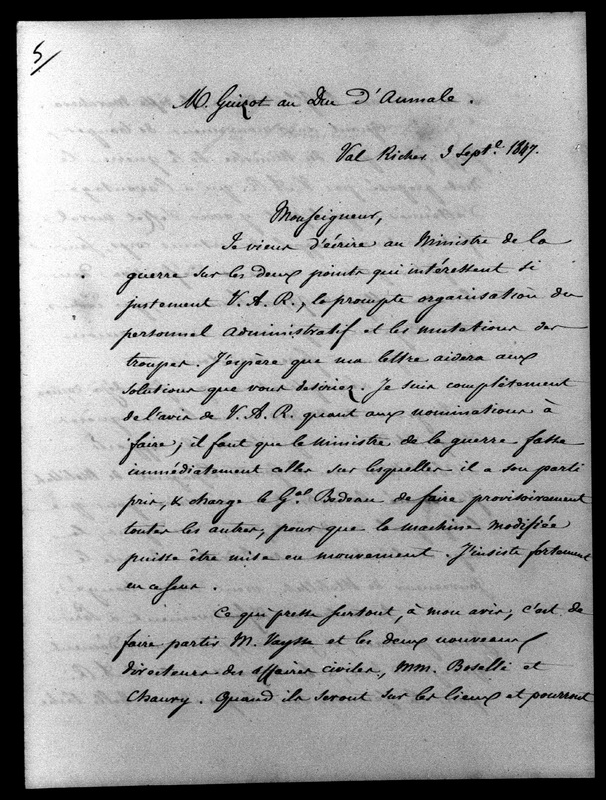 5/
M. Guizot au Duc d'Aumale.
Val Richer 3 Septe. 1847.
Monseigneur,
Je viens d'écrire au Ministre de la
guerre sur les deux points qui intéressent si
justement V. A. R., la prompte organisation du
personnel administratif et les mutations des
troupes. J'espère que ma lettre aidera aux
solutions que vous désiriez. Je suis complètement
de l'avis de V. A. R. quant aux nominations à
faire; il faut que le ministre de la guerre fasse
immédiatement celles sur lesquelles il a son parti
pris, & charge le Gal Bedeau de faire provisoirement
toutes les autres, pour que la machine modifiée
puisse être mise en mouvement. J'insiste fortement
en ce sens.
Ce qui presse surtout, à mon avis, c'est de
faire partir M. Vaysse et les deux nouveaux
directeurs des affaires civiles, MM. Boselli et
Chaury. Quand ils seront sur les lieux et pourront